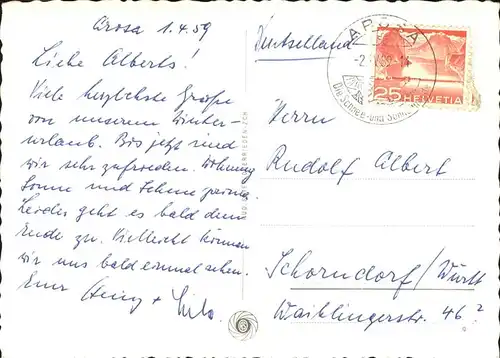 Arosa 1.4.59
Liebe Alberts!
Viele herzlichste Grüße
von unserem Winter-
urlaub. Bis jetzt sind
wir sehr zufrieden. Wohnung
Sonne und Schnee prima.
Leider geht es bald dem
Ende zu. Vielleicht können
wir uns bald einmal sehen.
Eure Heinz +
Deutschland
AROSA
25 HELVETIA
Herrn
Rudolf Albert
Schorndorf/Württ
Waiblingerstr. 46²